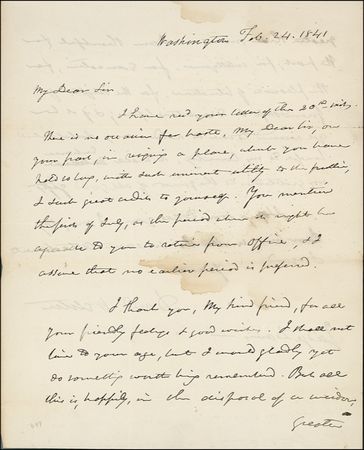 Washington Feb. 24. 1841
My Dear Sir
I have recd your letter of the 20th inst.
There is no occasion for haste, My Dear Sir, on
your part, in resigning a place, which you have
held so long, with such eminent utility to the public,
& such great credit to yourself. You mention
the first of July, as the period when it might be
agreeable to you to retire from office, & I
assume that no earlier period is preferred.
I thank you, My kind friend, for all
your friendly feelings & good wishes. I shall not
live to your age, but I would gladly yet
do something worth being remembered. But all
this is, happily, in the disposal of a wisdom,
greater